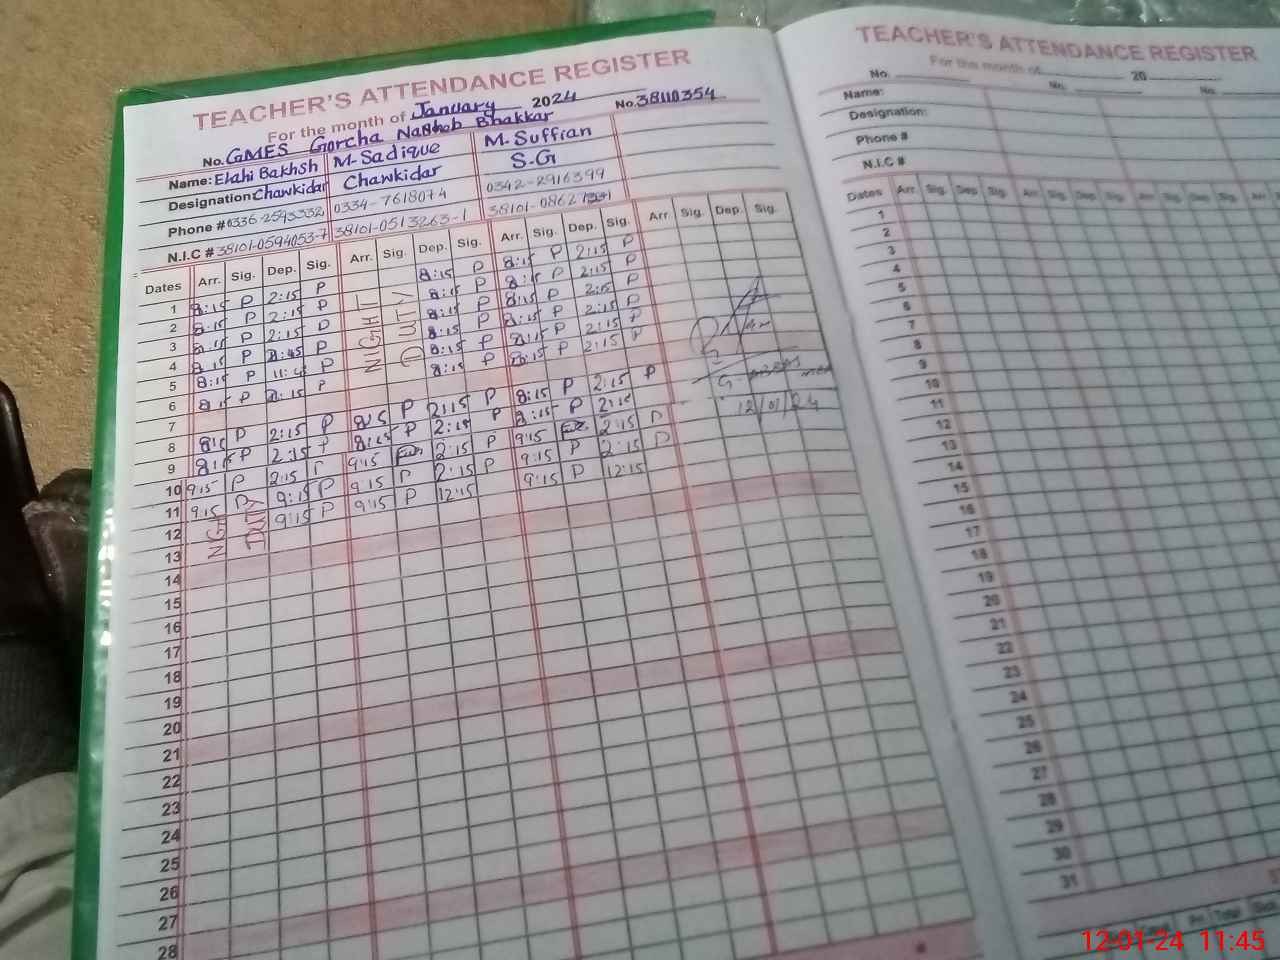 TEACHER'S ATTENDANCE REGISTER
For the month of January 2024 No. 38110354
No. GMES Gorcha Bhakkar
Name: Elahi Bakhsh M. Sadique M. Suffian
Designation: Chawkidar Chawkidar S.G
Phone # 0336-2593332 0334-7618074 0342-2916399
N.I.C # 38101-0594053-7 38101-0513263-1
Dates Arr. Sig. Dep. Sig. Arr. Sig. Dep. Sig. Arr. Sig. Dep. Sig. Arr. Sig. Dep. Sig.
NIGHT DUTY
1 8:15 P 2:15 P 8:15 P 8:15 P 2:15 P
2 8:15 P 2:15 P 8:15 P 8:15 P 2:15 P
3 8:15 P 2:15 P 8:15 P 8:15 P 2:15 P
4 8:15 P P 8:15 P 8:15 P 2:15 P
5 8:15 P P 8:15 P 8:15 P 2:15 P
6 8:15 P P 8:15 P 8:15 P 2:15 P
7
8 8:15 P 2:15 P 8:15 P 2:15 P 8:15 P 2:15 P
9 8:15 P 2:15 P 8:15 P 2:15 P 8:15 P 2:15
10 9:15 P 2:15 P 9:15 2:15 P 9:15 2:15 P
11 9:15 P 9:15 P 9:15 P 2:15 P 9:15 P 2:15 P
12 9:15 P 9:15 P 12:15 9:15 P 12:15
DUTY
12/01/24
13
14
15
16
17
18
19
20
21
22
23
24
25
26
27
28
TEACHER'S ATTENDANCE REGISTER
For the month of 20
No. No. No.
Name:
Designation:
Phone #
N.I.C #
Dates Arr. Sig. Dep. Sig. Arr. Sig. Dep. Sig. Arr. Sig. Dep. Sig. Arr.
1
2
3
4
5
6
7
8
9
10
11
12
13
14
15
16
17
18
19
20
21
22
23
24
25
26
27
28
29
30
31
Total
12-01-24 11:45